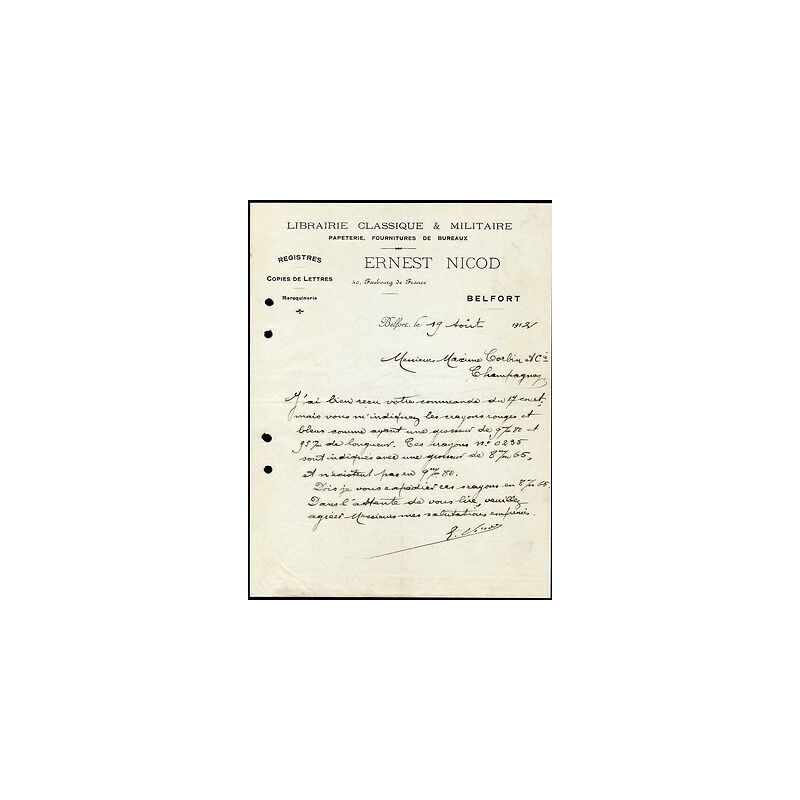 LIBRAIRIE CLASSIQUE & MILITAIRE
PAPETERIE, FOURNITURES DE BUREAUX
REGISTRES
COPIES DE LETTRES
Maroquinerie
ERNEST NICOD
40, Faubourg de France
BELFORT
Belfort, le 19 Août 1912
Messieurs Maxime Corbin & Cie
Champagney
J'ai bien reçu votre commande du 17 court
mais vous m'indiquez les crayons rouges et
bleus comme ayant une grosseur de 9 m/m 80 et
95 m/m de longueur. Ces crayons No 0235
sont indiqués avec une grosseur de 8 m/m 65,
et n'existent pas en 9 m/m 80.
Dois je vous expédier ces crayons en 8 m/m 65.
Dans l'attente de vous lire, veuillez
agréer Messieurs mes salutations empressées.
E. Nicod